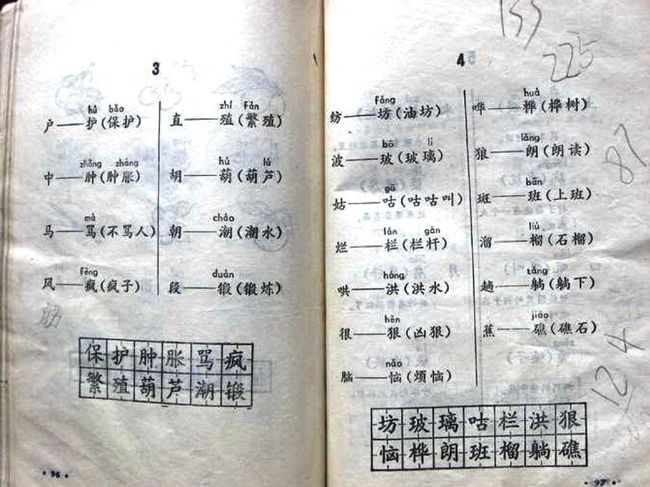 3
hù bǎo
户——护(保护)
zhǒng zhàng
中——肿(肿胀)
mà
马——骂(不骂人)
fēng
风——疯(疯子)
zhí fán
直——殖(繁殖)
hú lú
胡——葫(葫芦)
cháo
朝——潮(潮水)
duàn
段——锻(锻炼)
保护肿胀骂疯
繁殖葫芦潮锻
·96·
4
fáng
纺——坊(油坊)
bō li
波——玻(玻璃)
gū
姑——咕(咕咕叫)
lán gān
烂——栏(栏杆)
hóng
哄——洪(洪水)
hěn
很——狠(凶狠)
nǎo
脑——恼(烦恼)
huà
哗——桦(桦树)
lǎng
狼——朗(朗读)
bān
斑——班(上班)
liú
溜——榴(石榴)
tǎng
趟——躺(躺下)
jiāo
蕉——礁(礁石)
坊玻璃咕栏洪狠
恼桦朗班榴躺礁
·97·
225
87